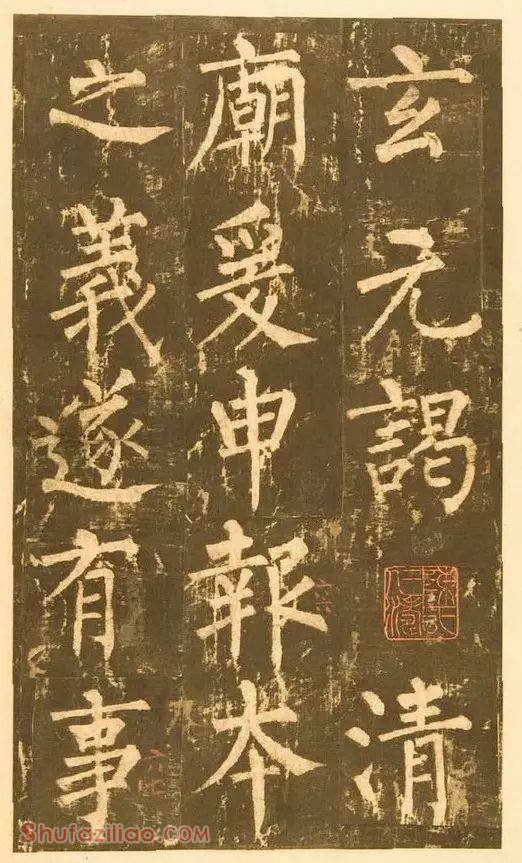 玄元謁清
廟爰申報本
之義遂有事
Shufaziliao.COM